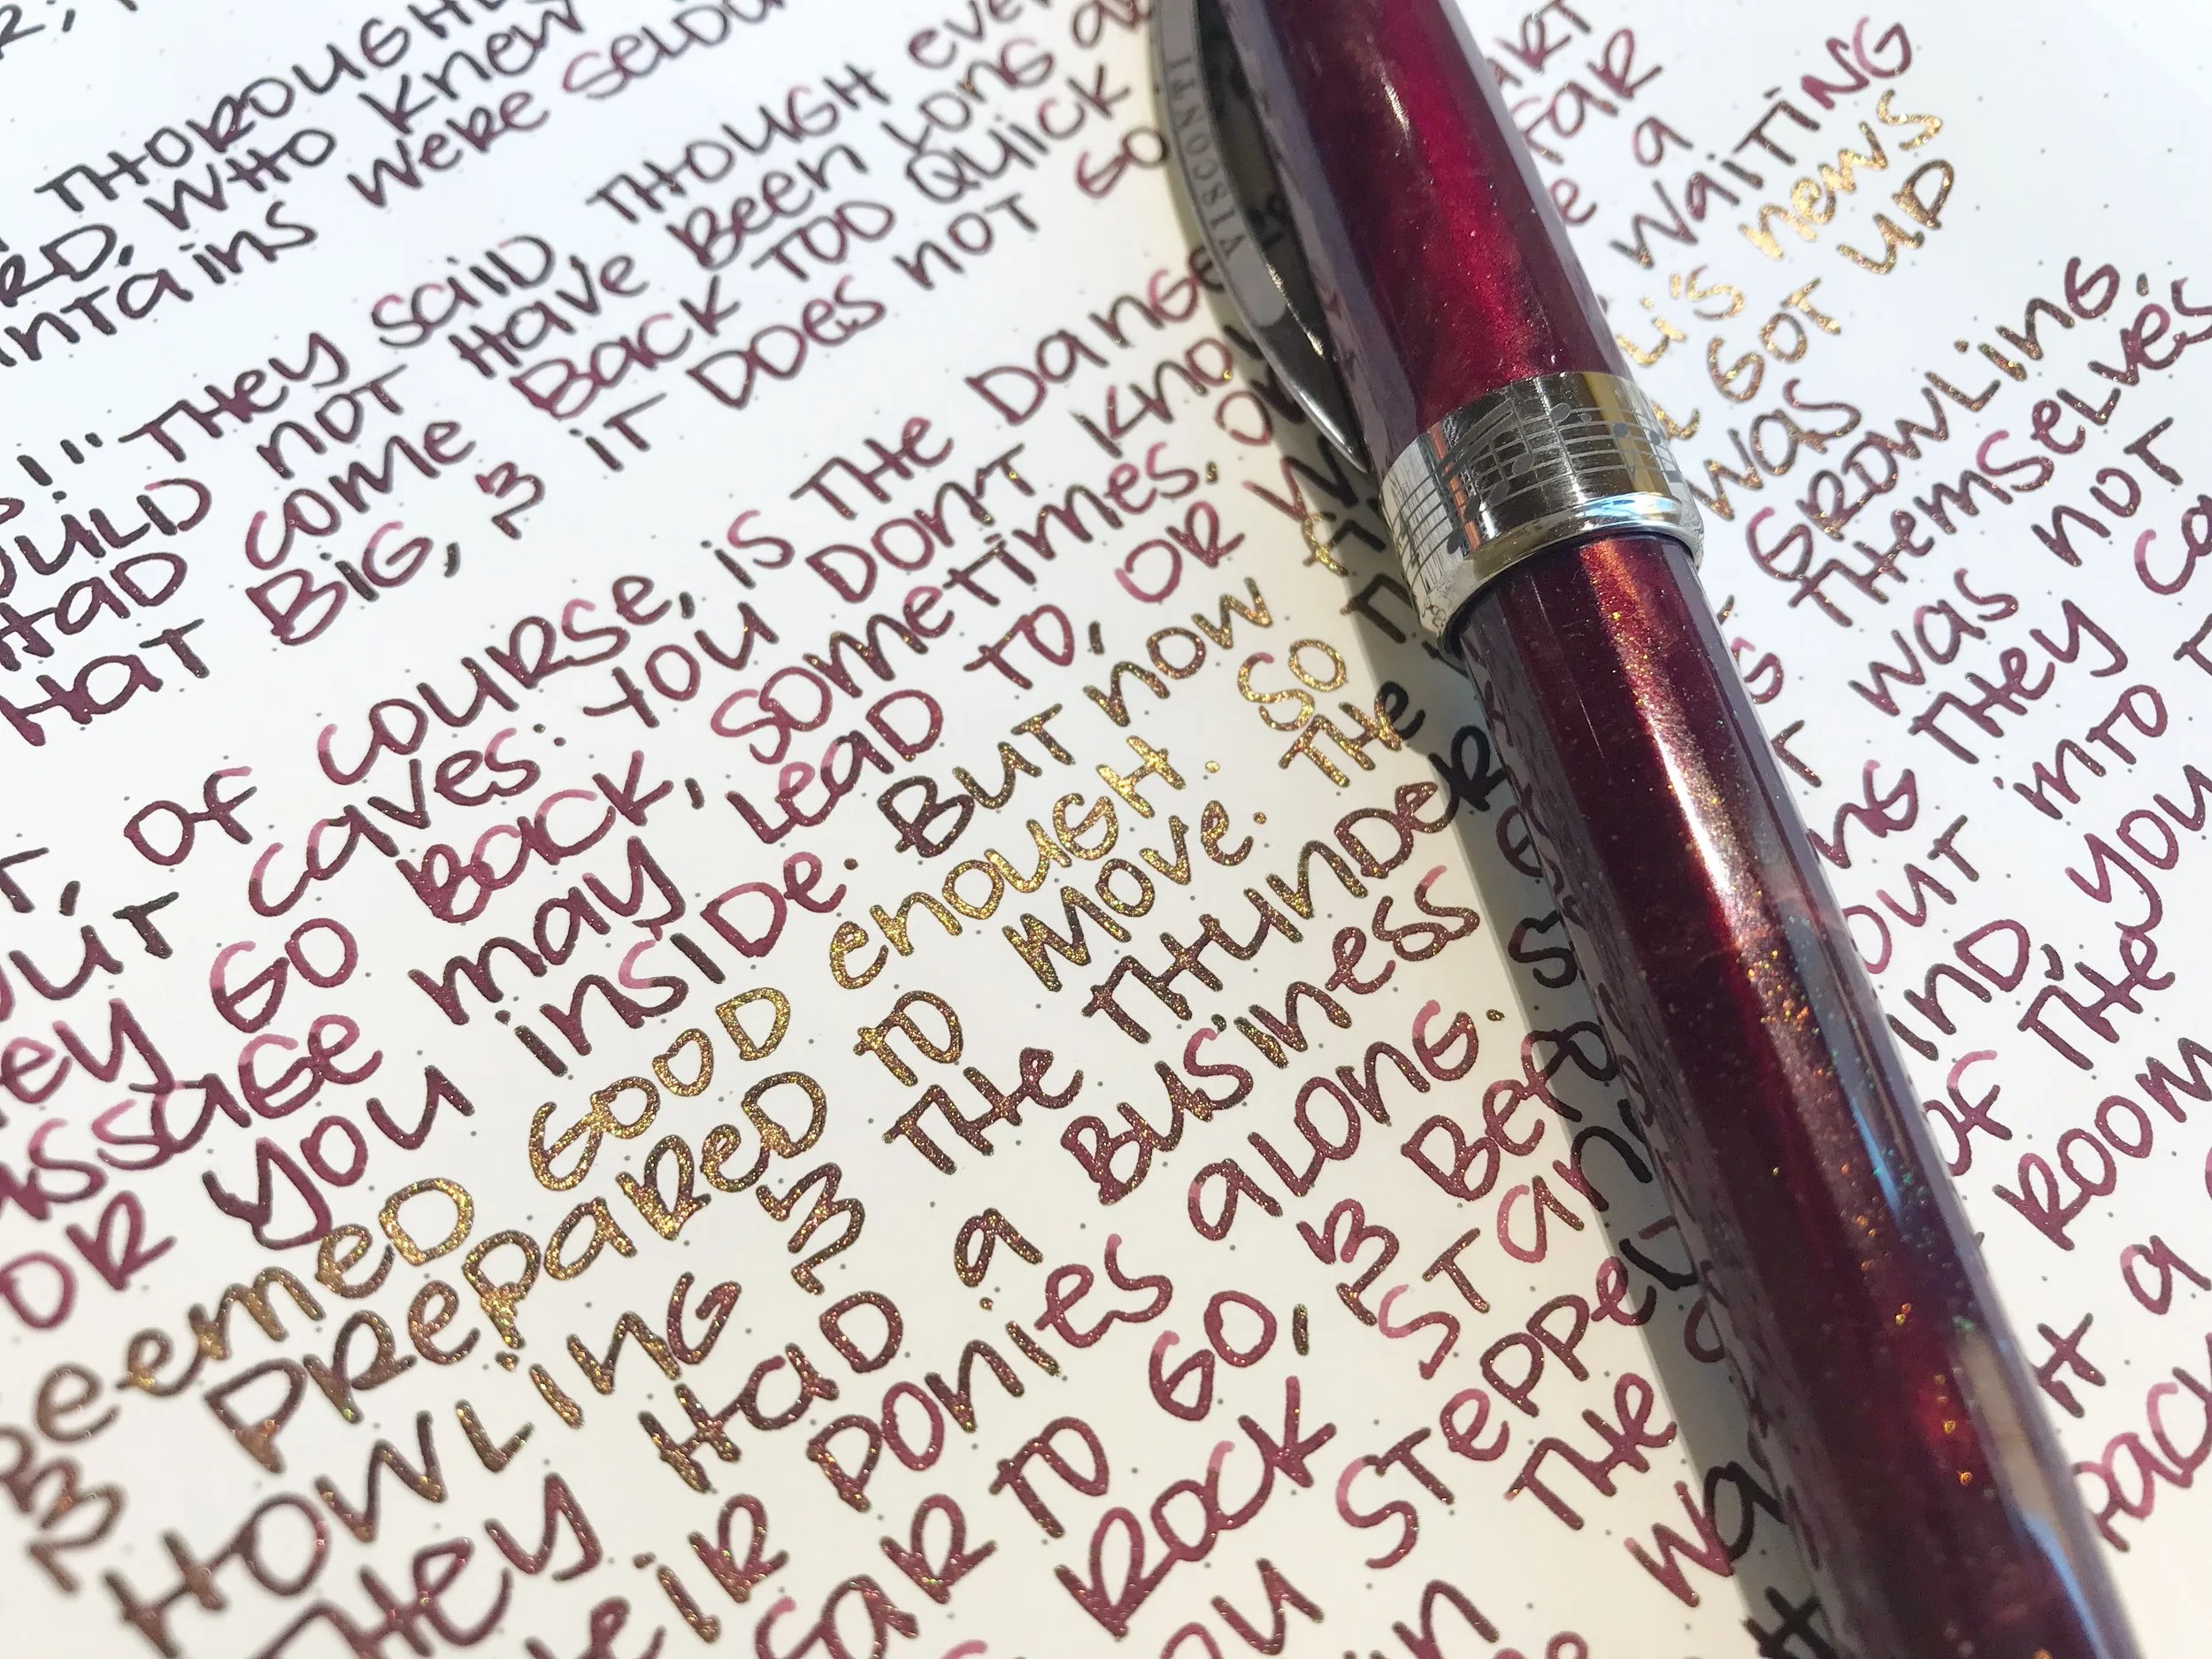 THOROUGH
RD, WHO KNEW
INTAINS WERE SELDO
S!" THEY SAID, THOUGH EVE
OULD NOT HAVE BEEN LONG A
HAD COME BACK TOO QUICK
HAT BIG, & IT DOES NOT GO
T, OF COURSE, IS THE DANGE ART
OUT CAVES: YOU DON'T KNO FAR
EY GO BACK, SOMETIMES. OR E A
ASSAGE MAY LEAD TO, OR W WAITING
OR YOU INSIDE. BUT NOW LI'S NEWS
SEEMED GOOD ENOUGH. SO GOT UP
& PREPARED TO MOVE. THE WAS
HOWLING & THE THUNDER S GROWLING,
THEY HAD A BUSINESS THEMSELVES
EIR PONIES ALONG. WAS NOT
FAR TO GO, & BEFO NG THEY CA
ROCK STAN OUT INTO T
OU STEPPED IND, YOU
IN THE OF THE
WA ROOM
H A
PACK
VISCONTI